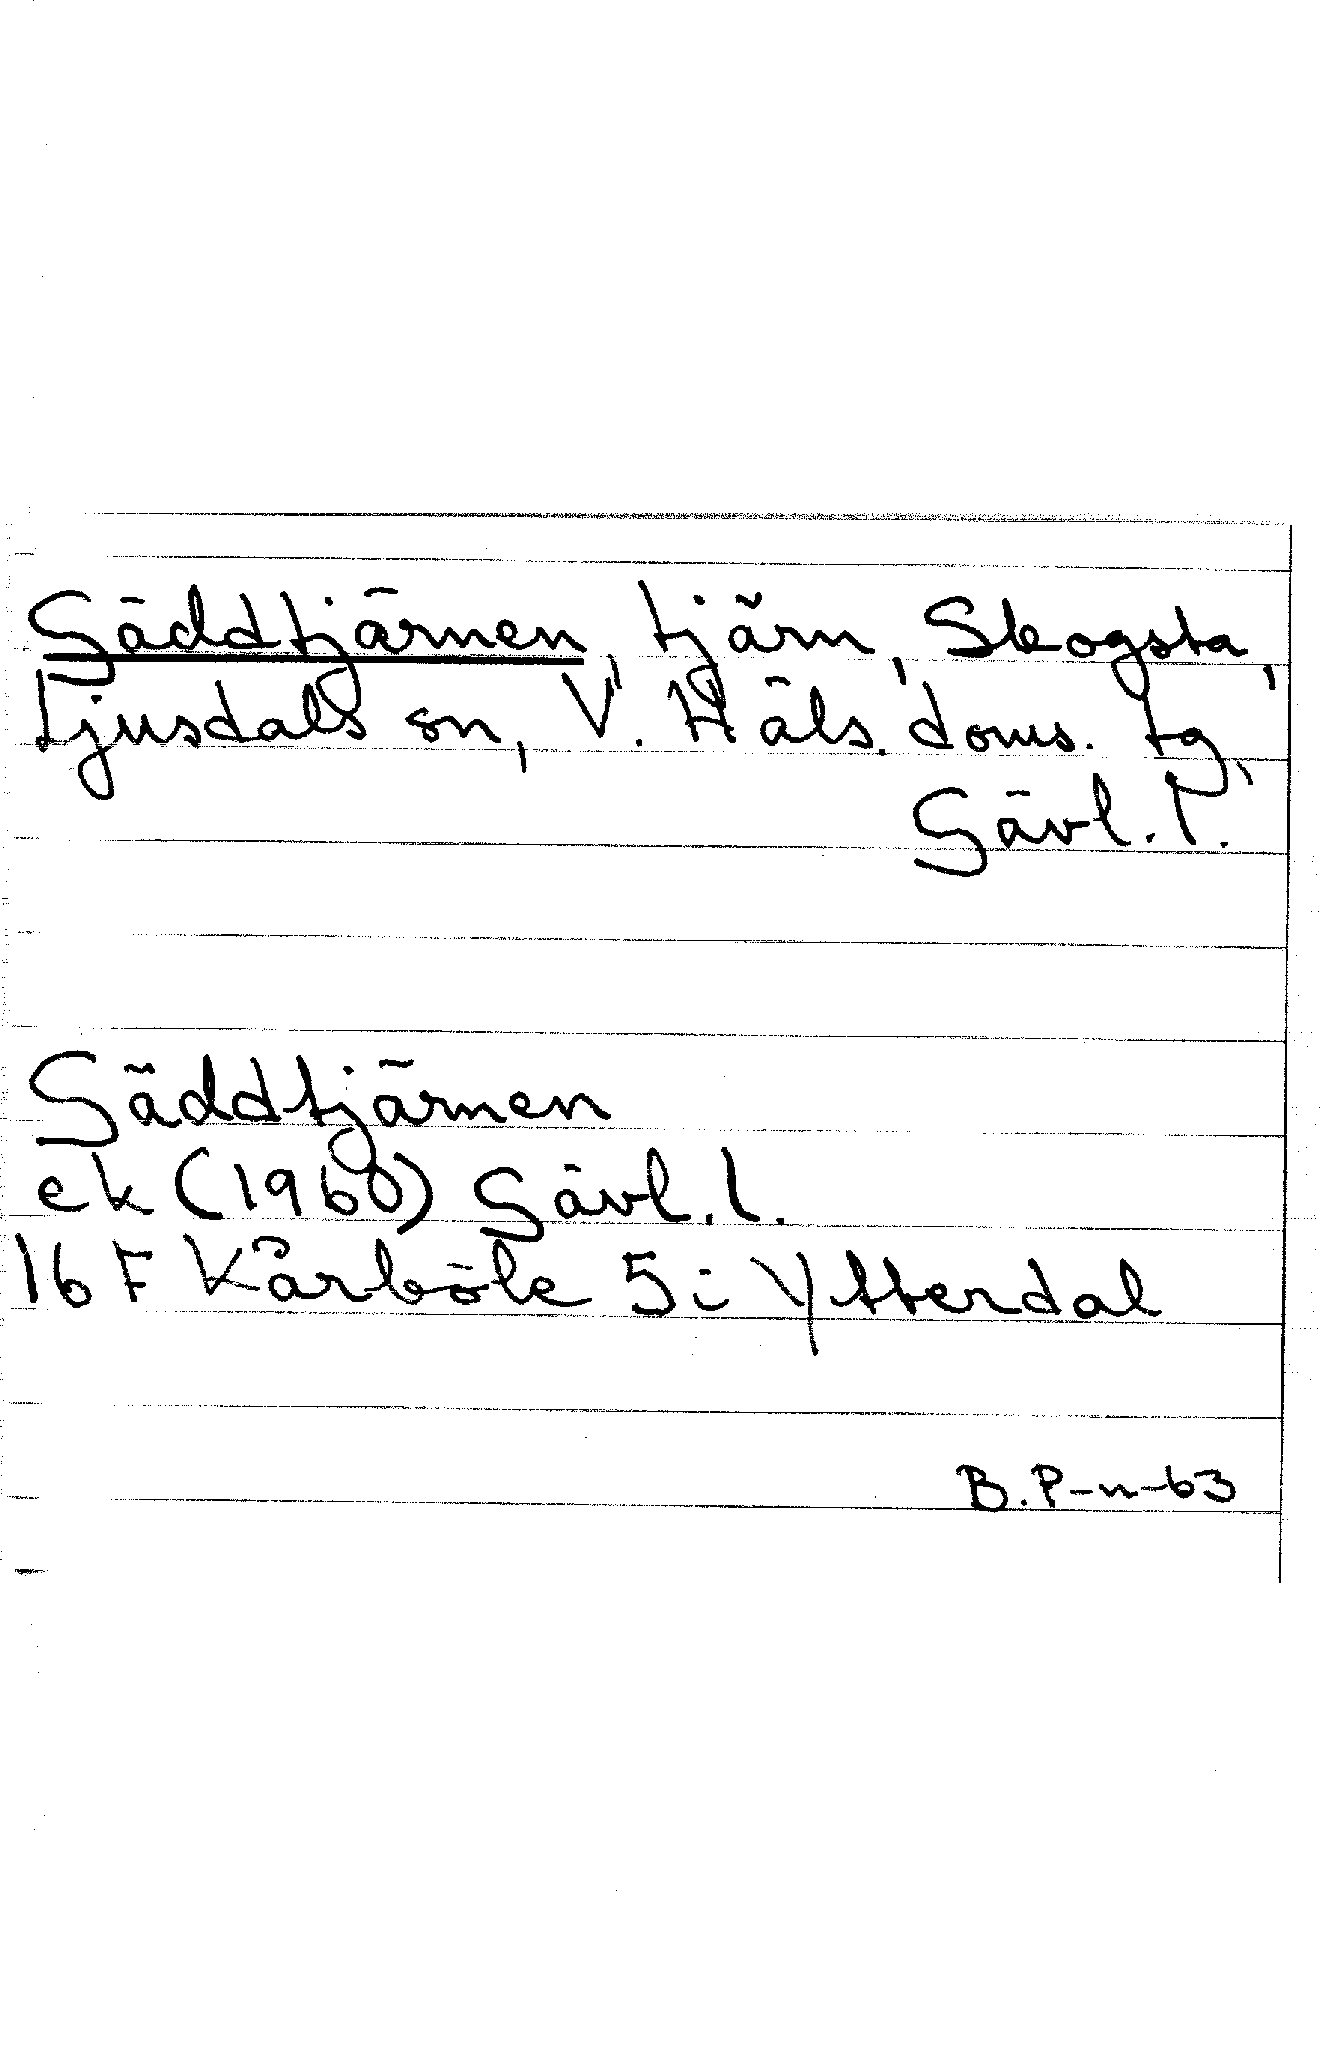 Gäddtjärnen, tjärn, Skogsta,
Ljusdals sn, V. Häls. doms. tg,
Gävl. l.
Gäddtjärnen
ek (1960) Gävl. l.
16 F Kårböle 5 i Ytterdal
B.P-n-63